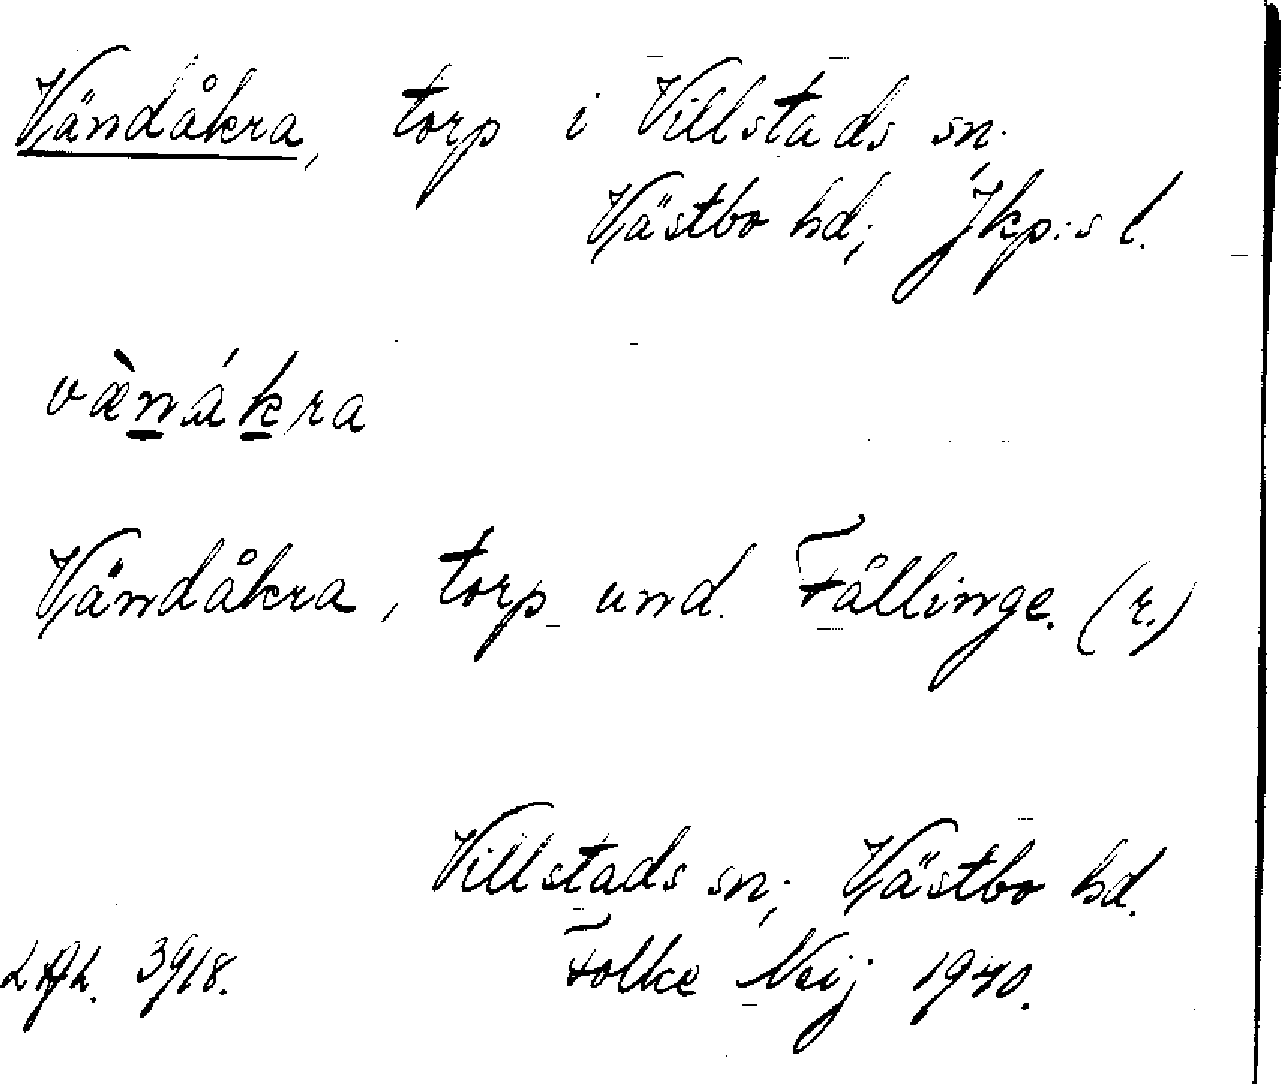 Vändåkra, torp i Villstads sn;
Västbo hd; Jkp:s l.
væ̀nákra
Vändåkra, torp und. Fållinge. (r.)
Villstads sn; Västbo hd.
3918. Folke Neij 1940.